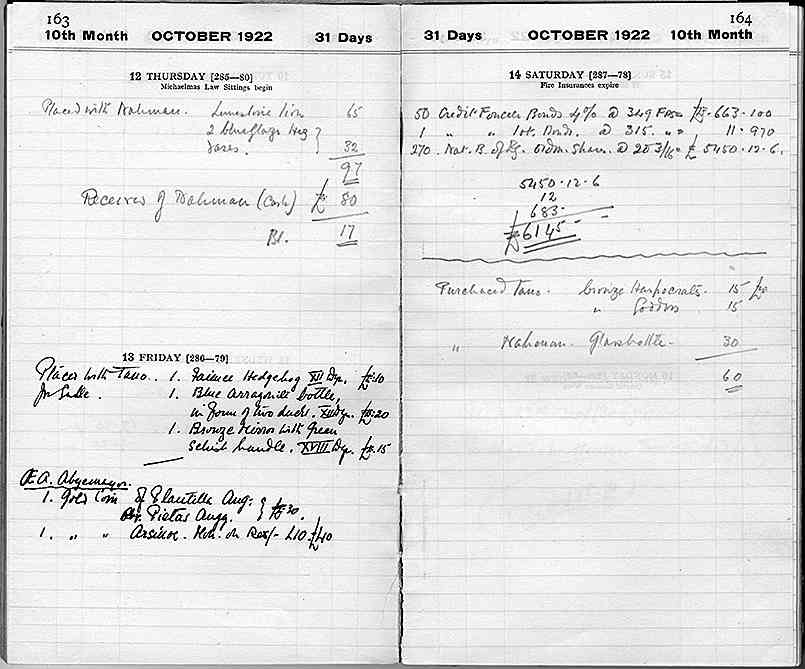 163
10th Month OCTOBER 1922 31 Days
12 THURSDAY [285—80]
Michaelmas Law Sittings begin
Placed with Nahman. Limestone lion 65
2 blue glaze Heg
Vases. 32
97
Received of Nahman (Cash) £ 80
Bl. 17
13 FRIDAY [286—79]
Placed with Tano. 1. Faience Hedgehog XII Dyn. £E.10
for Sale. 1. Blue arragonite bottle,
in form of two ducks. XII Dyn. £E.20
1. Bronze Mirror with Green
Schist handle. XVIII Dyn. £E.15
A. Abyemayor.
1. Gold Coin of Plautilla Aug:
Pietas Augg. £E 30.
1. " " Arsinoe. on £40
164
31 Days OCTOBER 1922 10th Month
14 SATURDAY [287—78]
Fire Insurances expire
50 Credit Foncier Bonds 4% @ 349 £E. 663.100
1 " " Bonds. @ 315. " " 11.970
270. Nat. B. of Eg. Ordin. Shares @ 20 3/16 £ 5450.12.6.
5450.12.6
12
683
£6145
Purchased Tano. bronze Harpocrates. 15 £E
" Goddess 15
" Nahman. Glass bottle 30
60